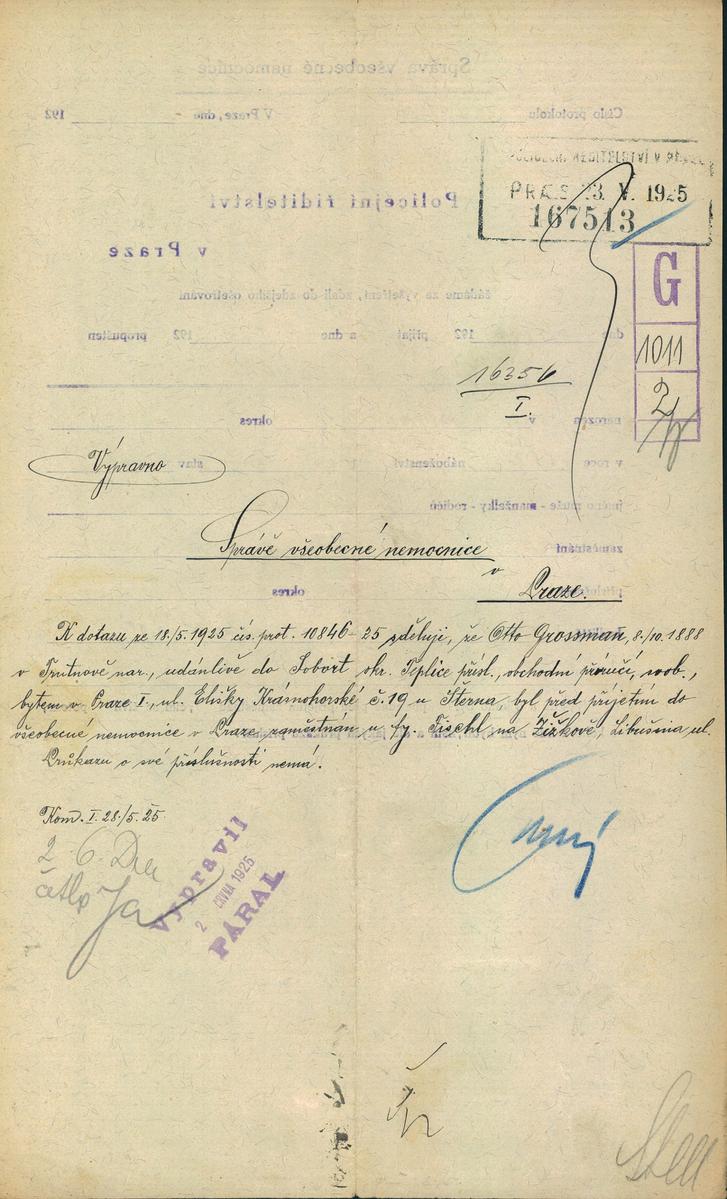 Správa všeobecné nemocnice
Číslo protokolu
V Praze, dne
192
POLICEJNÍ ŘEDITELSTVÍ V PRAZE
PRÆS 23. V. 1925
167513
Policejní ředitelství
v Praze
G
1011
2/
žádáme za vyšetření, zdali do zdejšího ošetřování
dne 192 přijat a dne 192 propuštěn
16356
I.
narozen v okres
Výpravno
v roce náboženství stav
jméno muže - manželky - rodičů
Správě všeobecné nemocnice
zaměstnání
v
Praze.
okres
K dotazu ze 18./5. 1925 čís. prot. 10846-25 sděluji, že Otto Grossman, 8./10. 1888
v Trutnově nar., udánlivě do Sobort okr. Teplice přísl., obchodní příručí, svob.,
bytem v Praze I., ul. Elišky Krásnohorské č. 19 u Sterna, byl před přijetím do
všeobecné nemocnice v Praze zaměstnán u fy. Fischl na Žižkově, Libušina ul.
Průkazu o své příslušnosti nemá.
Kom. I. 28./5. 25.
2. 6.
četlo
Vypravil
2 ČRVNA 1925
PÁRAL